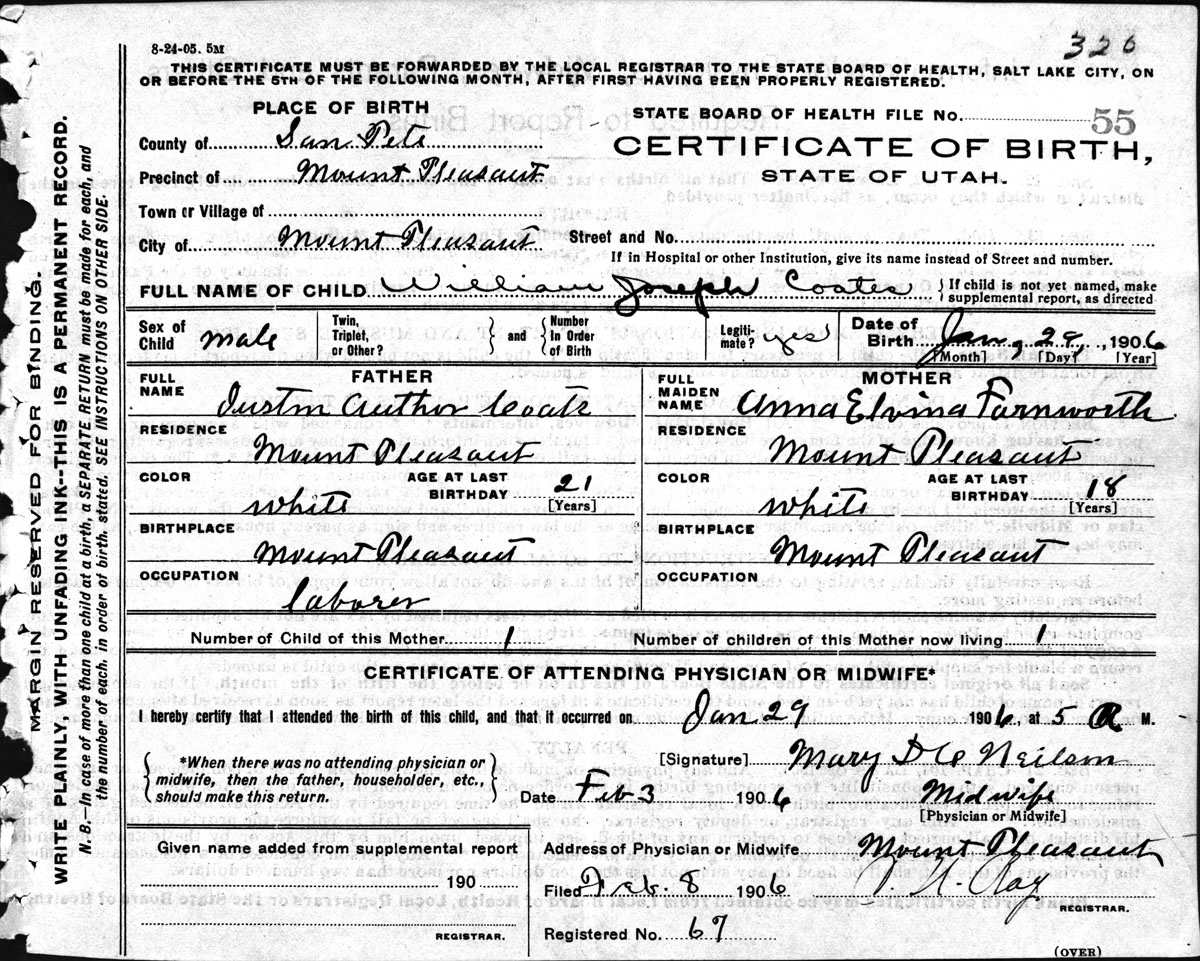 8-24-05. 5M
326
THIS CERTIFICATE MUST BE FORWARDED BY THE LOCAL REGISTRAR TO THE STATE BOARD OF HEALTH, SALT LAKE CITY, ON
OR BEFORE THE 5TH OF THE FOLLOWING MONTH, AFTER FIRST HAVING BEEN PROPERLY REGISTERED.
MARGIN RESERVED FOR BINDING.
WRITE PLAINLY, WITH UNFADING INK--THIS IS A PERMANENT RECORD.
N. B.—In case of more than one child at a birth, a SEPARATE RETURN must be made for each, and
the number of each, in order of birth, stated. SEE INSTRUCTIONS ON OTHER SIDE.
PLACE OF BIRTH
County of San Pete
Precinct of Mount Pleasant
Town or Village of
City of Mount Pleasant
STATE BOARD OF HEALTH FILE No. 55
CERTIFICATE OF BIRTH,
STATE OF UTAH.
Street and No.
If in Hospital or other Institution, give its name instead of Street and number.
FULL NAME OF CHILD William Joseph Coates { If child is not yet named, make
supplemental report, as directed
Sex of Child male
Twin, Triplet, or Other? } and { Number In Order of Birth
Legiti- mate? yes
Date of Birth Jan. 29, 1906
[Month] [Day] [Year]
FATHER
FULL NAME Justin Author Coats
RESIDENCE Mount Pleasant
COLOR white AGE AT LAST BIRTHDAY 21 [Years]
BIRTHPLACE Mount Pleasant
OCCUPATION laborer
MOTHER
FULL MAIDEN NAME Anna Elvina Farnworth
RESIDENCE Mount Pleasant
COLOR white AGE AT LAST BIRTHDAY 18 [Years]
BIRTHPLACE Mount Pleasant
OCCUPATION
Number of Child of this Mother 1 Number of children of this Mother now living 1
CERTIFICATE OF ATTENDING PHYSICIAN OR MIDWIFE*
I hereby certify that I attended the birth of this child, and that it occurred on Jan 29 1906, at 5 A M.
{ *When there was no attending physician or
midwife, then the father, householder, etc.,
should make this return. }
[Signature] Mary D C Neilson
Date Feb 3 1906 Midwife
[Physician or Midwife]
Given name added from supplemental report
190
REGISTRAR.
Address of Physician or Midwife Mount Pleasant
Filed Feb. 8 1906 Clay
REGISTRAR.
Registered No. 67
(OVER)